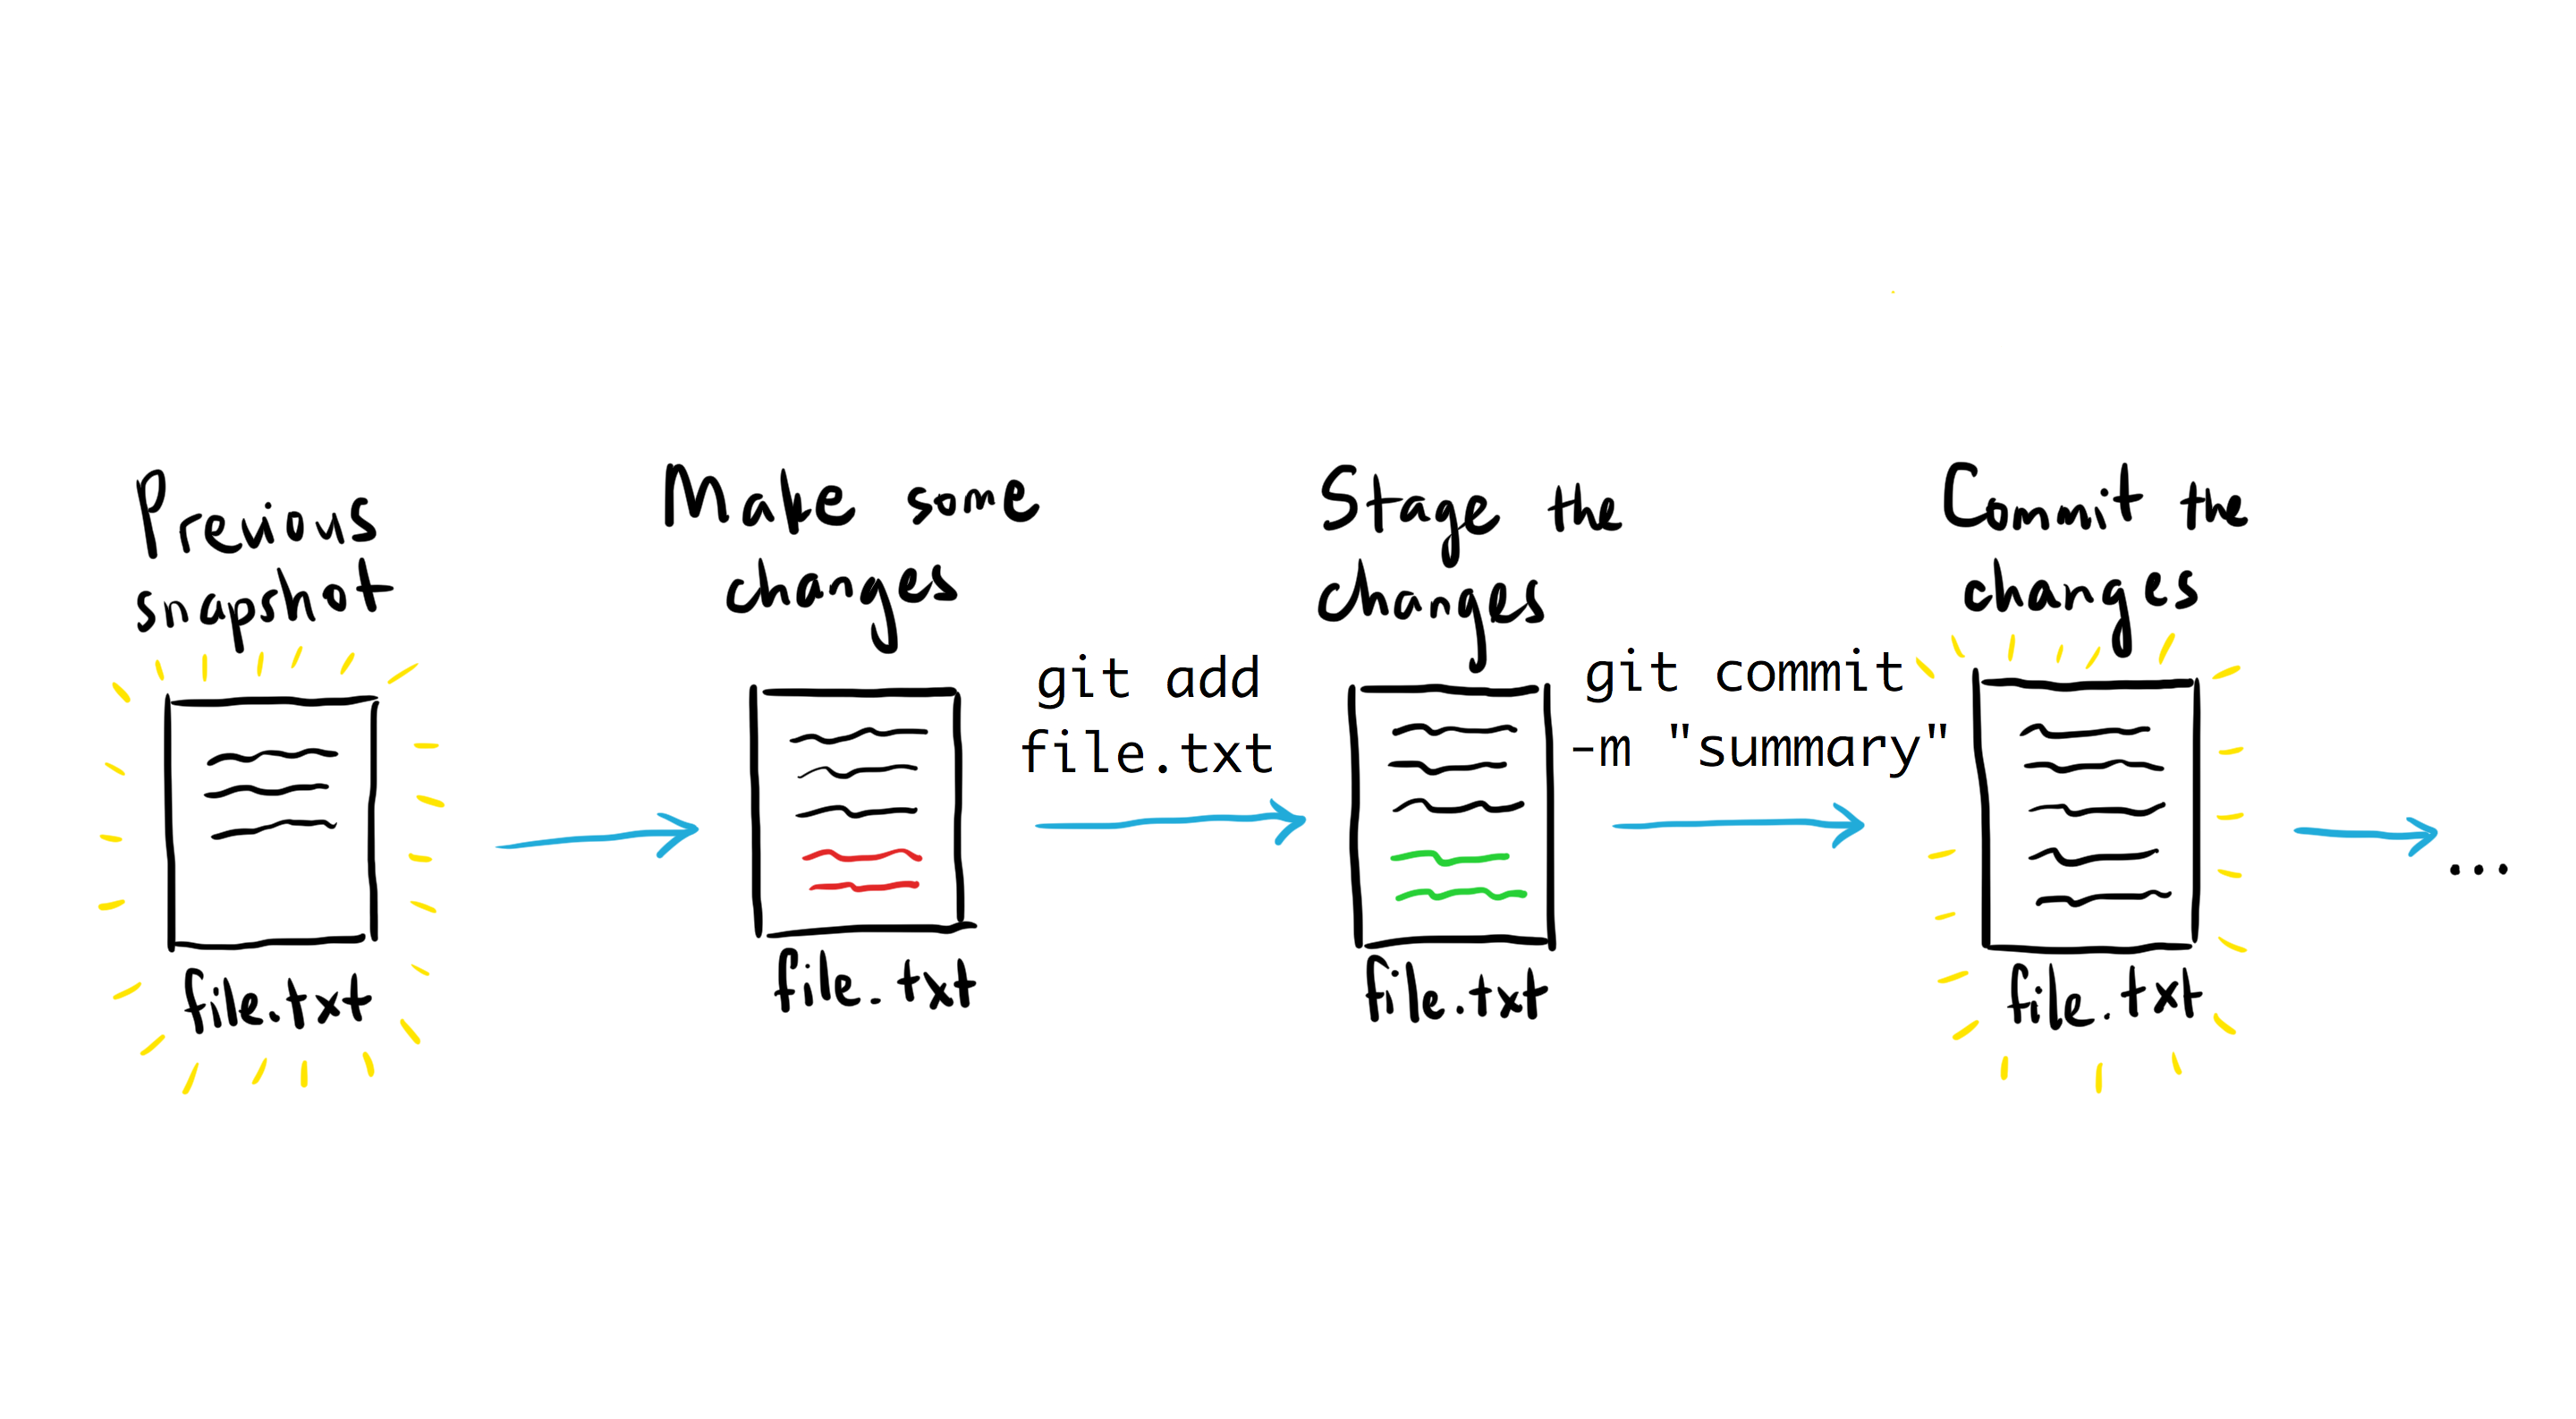 Previous
snapshot
file.txt
Make some
changes
file.txt
git add
file.txt
Stage the
changes
file.txt
git commit
-m "summary"
Commit the
changes
file.txt
...